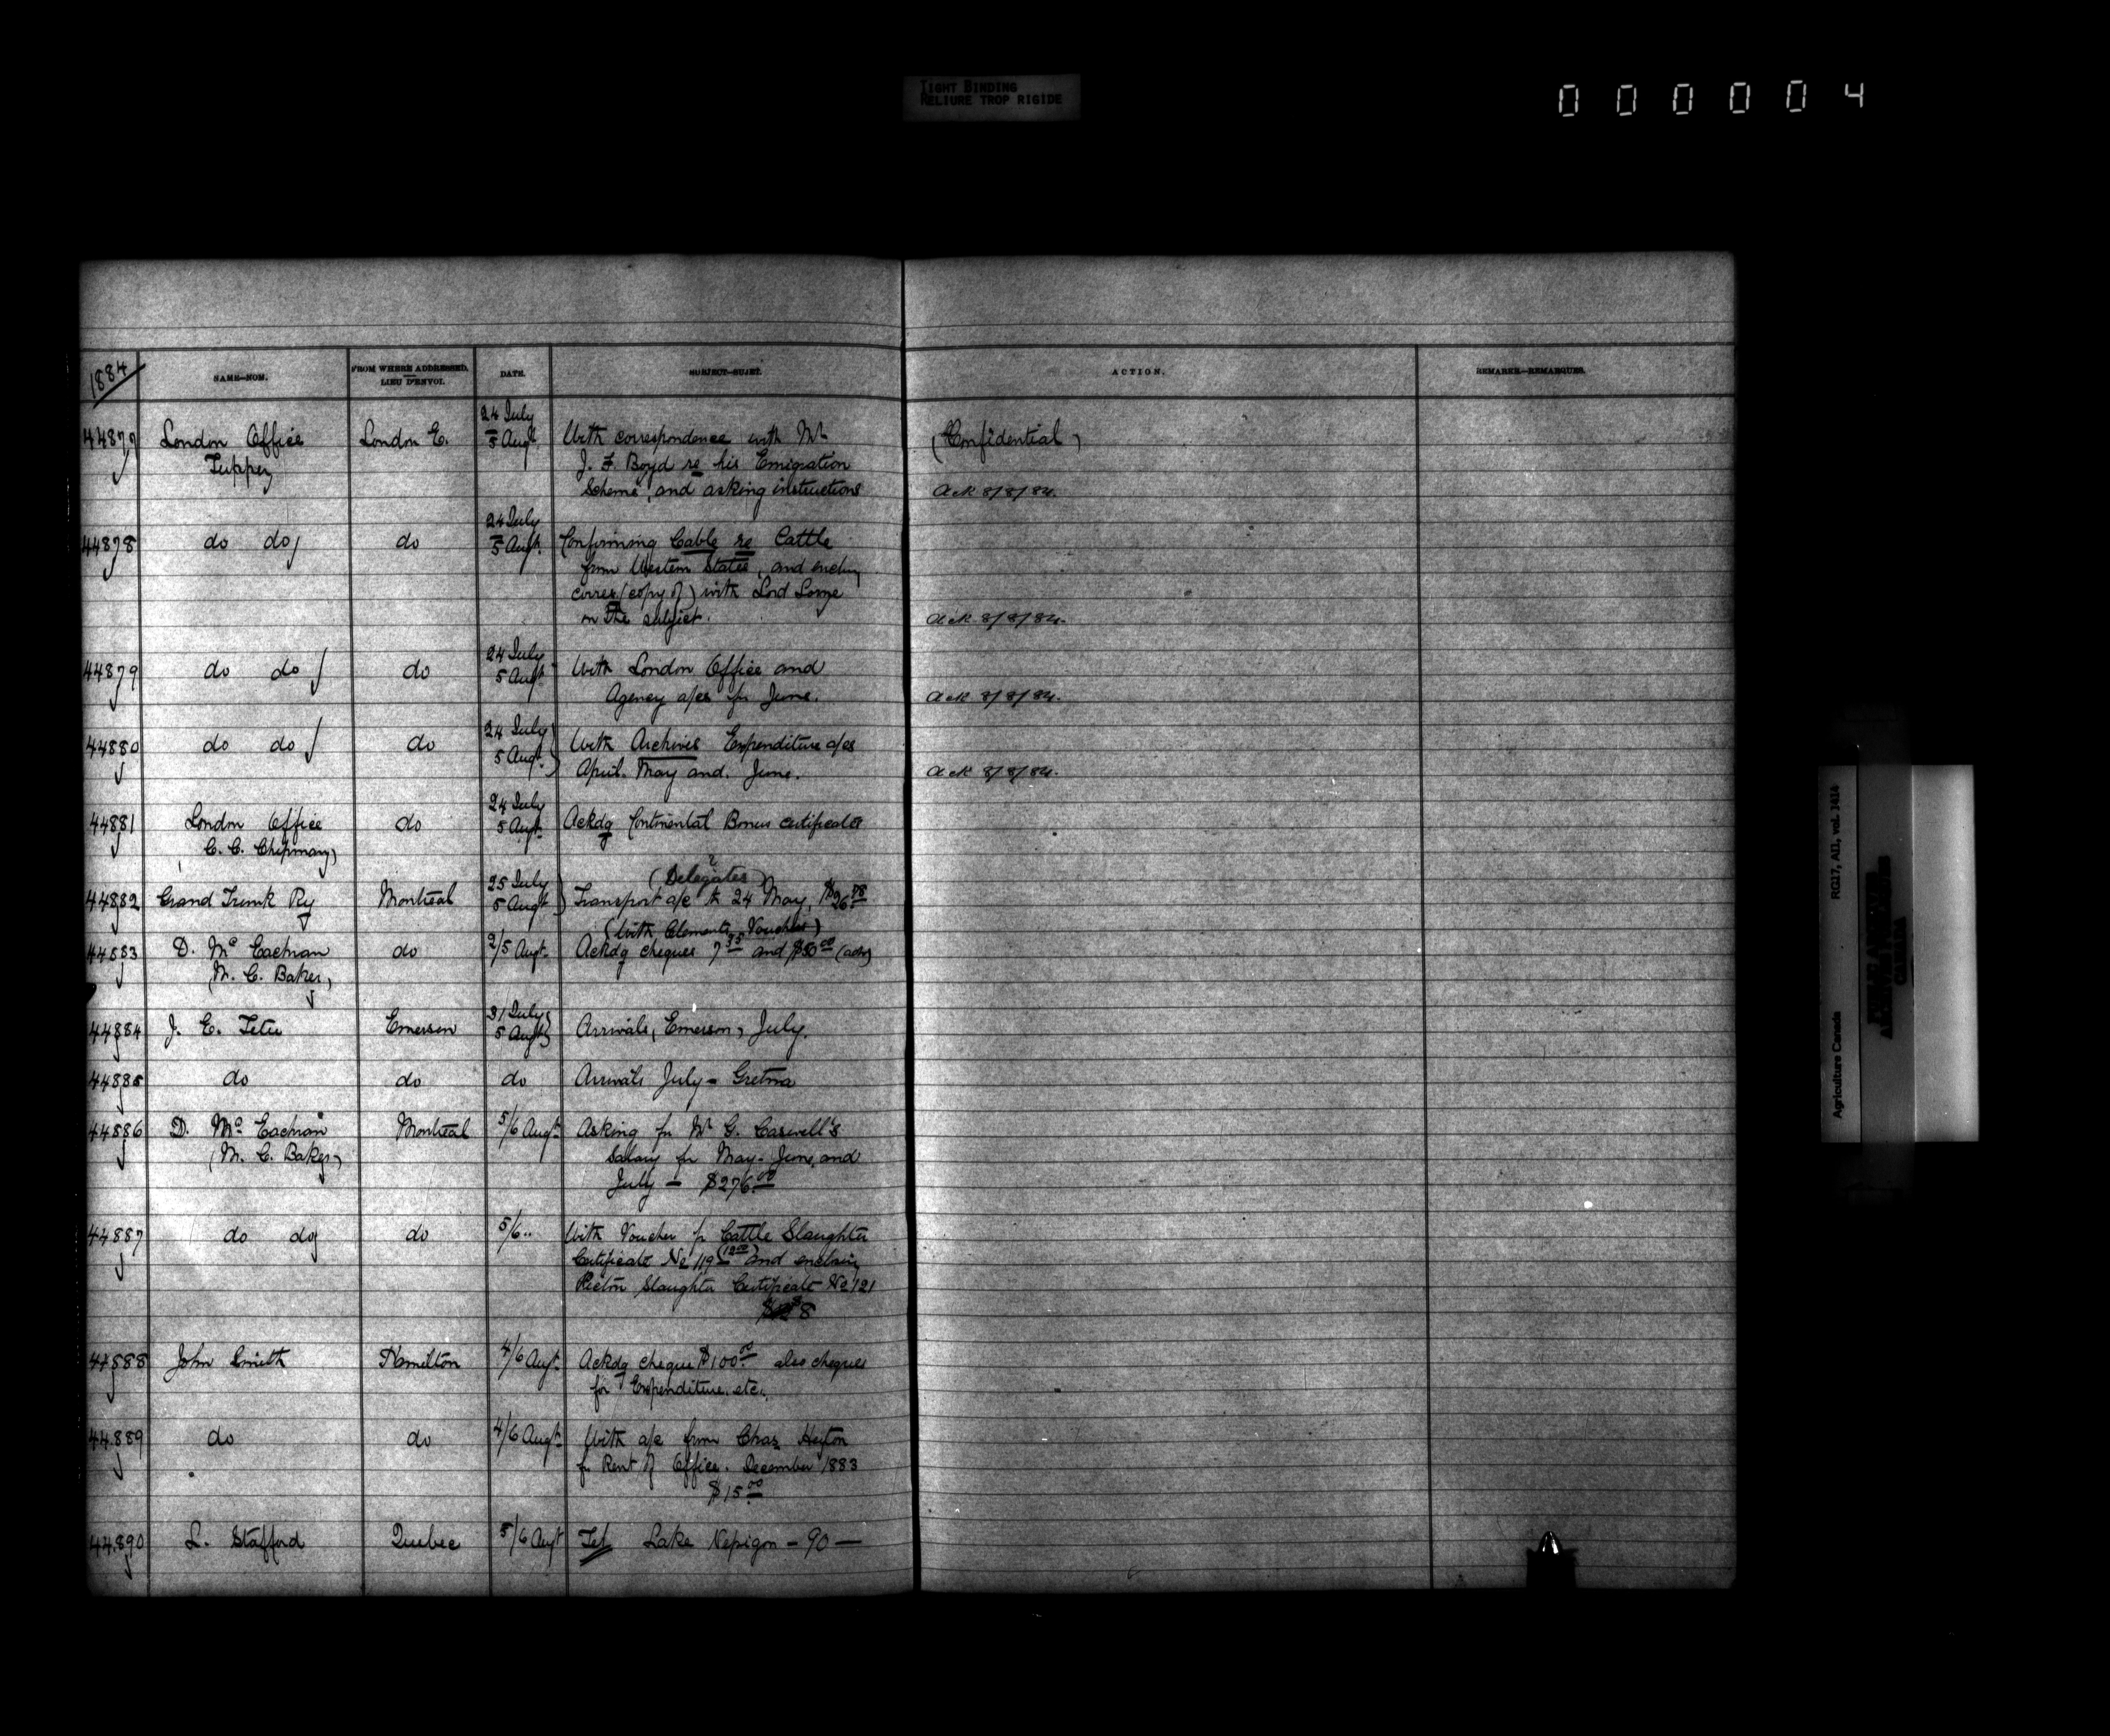 TIGHT BINDING
RELIURE TROP RIGIDE
000004
1884
NAME—NOM.
FROM WHERE ADDRESSED.
LIEU D'ENVOI.
DATE.
SUBJECT—SUJET.
ACTION.
REMARKS—REMARQUES.
44877 London Office London E. 24 July With correspondence with Mr (Confidential)
Tupper 5 Augt. J. F. Boyd re his Emigration
Scheme, and asking instructions Ack 8/8/84.
44878 do do do 24 July Confirming Cable re Cattle
5 Augt. from Western States, and enclng
corres (copy of) with Lord Lorne
on the subject. Ack 8/8/84.
44879 do do do 24 July With London Office and
5 Augt. Agency a/cs for June. Ack 8/8/84.
44880 do do do 24 July With Archives Expenditure a/cs
5 Augt. April. May and. June. Ack 8/8/84.
44881 London Office do 24 July Ackdg Continental Bonus certificates
C. C. Chipman) 5 Augt.
(Delegates)
44882 Grand Trunk Ry Montreal 25 July Transport a/c to 24 May,
5 Augt
(With Clements Voucher)
44883 D. Mc Eachran do 2/5 Augt. Ackdg cheques 7 35 and $50 00
(M. C. Baker)
44884 J. E. Tetu Emerson 31 July Arrivals, Emerson, July.
5 Augt
44885 do do do Arrivals July - Gretna
44886 D. Mc Eachran Montreal 5/6 Augt. Asking for Mr G. Caswell's
(M. C. Baker) Salary for May. June and
July — $276 00
44887 do do do 5/6 " With Voucher for Cattle Slaughter
Certificate No 119 (12 00) and enclosing
Pictou Slaughter Certificate No 121
8
44888 John Smith Hamilton 4/6 Augt. Ackdg cheque $100 00 also cheques
for Expenditure. etc.
44889 do do 4/6 Augt. With a/c from Chas
for Rent of Office. December 1883
$15 00
44890 L. Stafford Quebec 5/6 Augt Tel Lake Nepigon — 90 —
Agriculture Canada RG17, AII, vol. 1414
CANADA